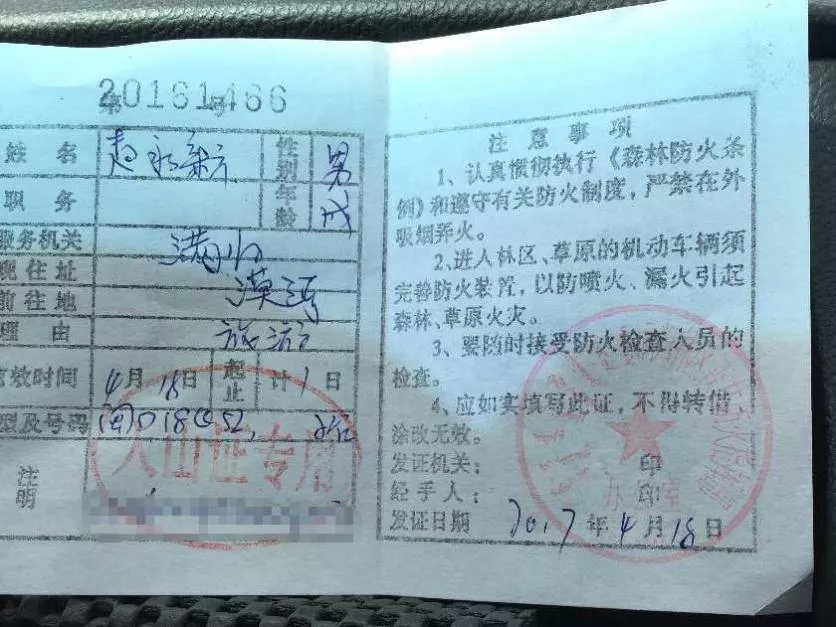 第20161466号
姓 名 性别 男
职 务 年龄 成
服务机关 满归
现住址
前往地 漠河
理 由 旅游
有效时间 4月18日 起止 计1日
型及号码
入山证专用
注明
注意事项
1、认真惯彻执行《森林防火条
例》和遵守有关防火制度，严禁在外
吸烟弄火。
2、进入林区、草原的机动车辆须
完善防火装置，以防喷火、漏火引起
森林、草原火灾。
3、要随时接受防火检查人员的
检查。
4、应如实填写此证，不得转借
涂改无效。
发证机关： 印
经手人： 印
发证日期 2017年4月18日